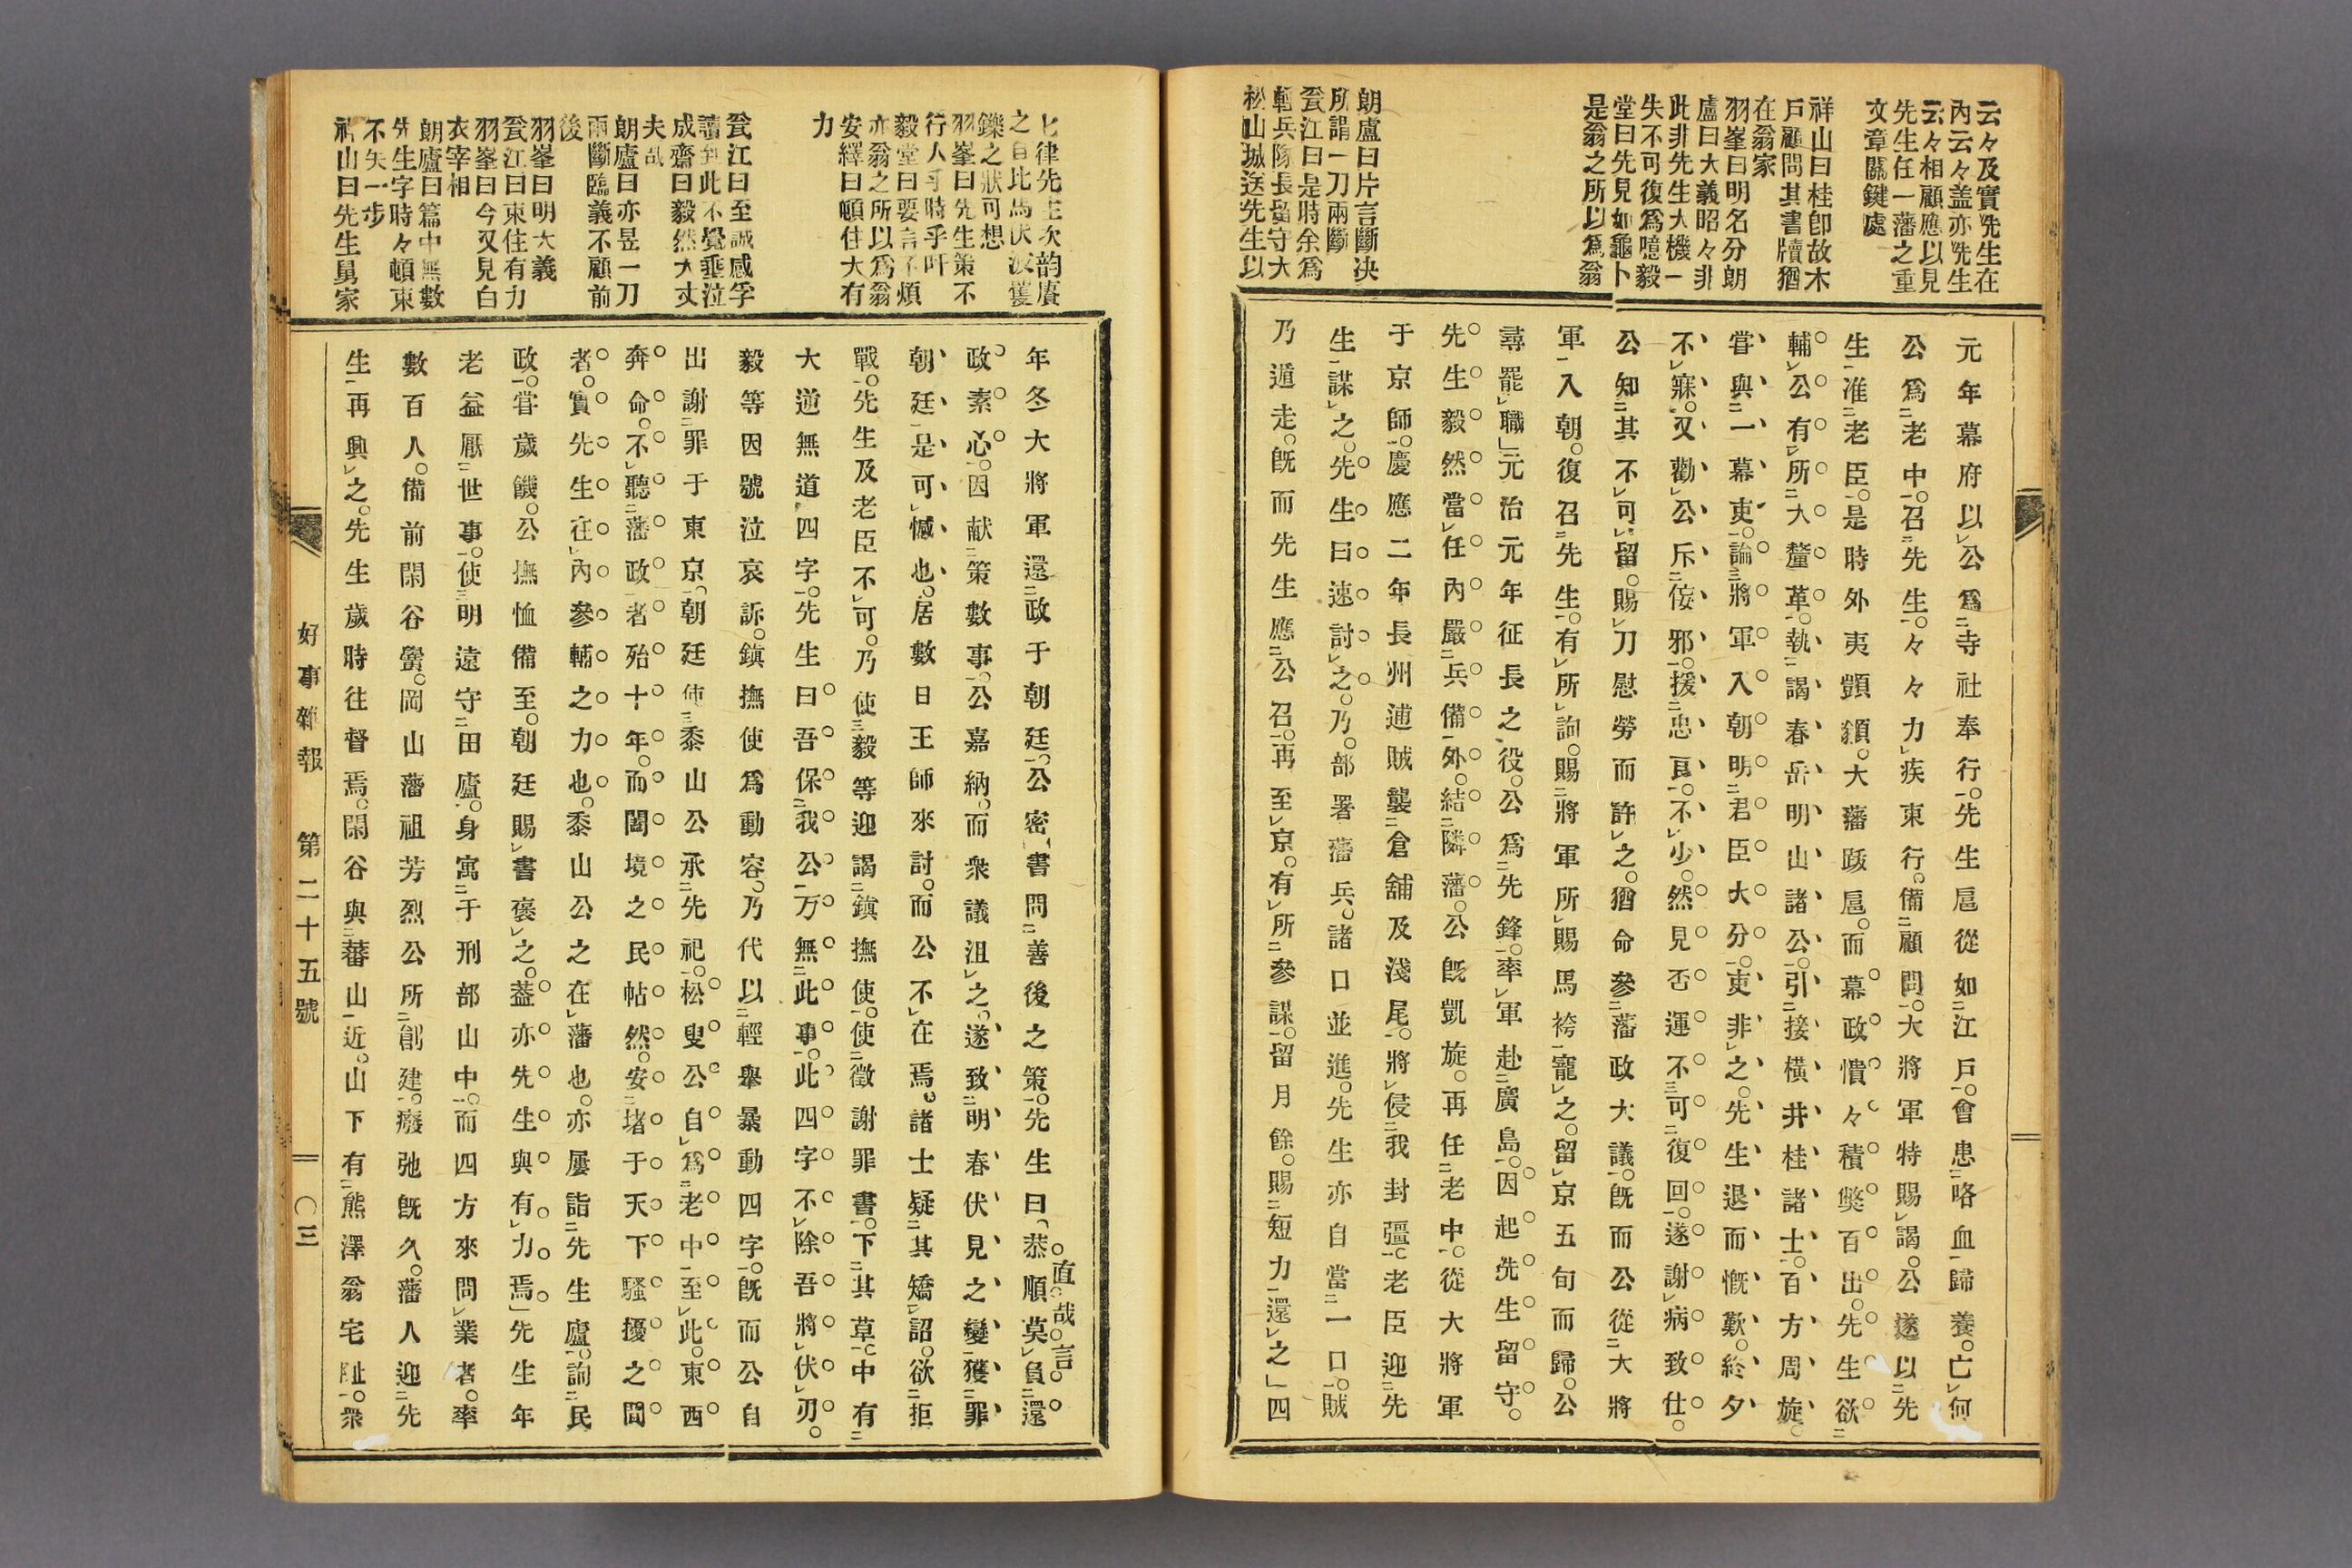 云々及實先生在
內云々盖亦先生
云々相顧應以見
先生任一藩之重
文章關鍵處
祥山曰桂卽故木
戶顧問其書牘猶
在翁家
羽峯曰明名分朗
盧曰大義昭々非
此非先生大機一
失不可復爲噫毅
堂曰先見如龜卜
是翁之所以爲翁
朗盧曰片言斷决
所謂一刀兩斷
瓮江曰是時余爲
輕兵隊長留守大
松山城送先生以
元年幕府以レ公爲二寺社奉行一。先生扈從如二江戶一。會患二咯血一歸養。亡レ何
公爲二老中一。召二先生一。々々力レ疾東行。備二顧問一。大將軍特賜レ謁。公遂以二先
生一准二老臣一。是時外夷顗頟。大藩跋扈。而幕政憒々積獘百出。先生欲三
輔レ公有レ所二大釐革一。執二謁春岳明山諸公一。引二接橫井桂諸士一。百方周旋。
嘗與二一幕吏一。論三將軍入朝明二君臣大分一。吏非レ之。先生退而慨歎。終夕
不レ寐。又勸レ公斥レ侫邪一。援二忠良一。不レ少。然見否運不三可二復回一。遂謝レ病致仕。
公知二其不一レ可レ留。賜レ刀慰勞而許レ之。猶命參二藩政大議一。旣而公從二大將
軍一入朝。復召二先生一。有レ所レ詢。賜二將軍所レ賜馬袴一寵レ之。留レ京五旬而歸。公
尋罷レ職」元治元年征長之役。公爲二先鋒一。率レ軍赴二廣島一。因起先生留守。
先生毅然當レ任內嚴二兵備一外。結二隣藩一。公旣凱旋。再任二老中一。從大將軍
于京師一。慶應二年長州逋賊襲二倉舖及淺尾一。將レ侵二我封彊一。老臣迎二先
生一謀レ之。先生曰速討レ之。乃部署藩兵。諸口並進。先生亦自當二一口一。賊
乃遁走。旣而先生應二公召一。再至レ京。有レ所二參謀一。留月餘。賜二短刀一還レ之」四
匕律先生次韵賡
之自比馬伏波矍
鑠之狀可想
羽峯曰先生策不
行人乎時乎吁
毅堂曰要言不煩
亦翁之所以爲翁
安繹曰頓住大有
力
瓮江曰至誠感孚
讀到此不覺垂泣
成齋曰毅然大丈
夫哉
朗廬曰亦昱一刀
兩斷臨義不顧前
後
羽峯曰明大義
瓮江曰束住有力
羽峯曰今又見白
衣宰相
朗廬曰篇中無數
先生字時々頓束
不失一步
祥山曰先生舅家
年冬大將軍還二政于朝廷一。公密書問二善後之策一。先生曰、恭順莫レ負二還
直哉言
政素心一。因献二策數事一。公嘉納。而衆議沮レ之。遂致二明春伏見之變一獲二罪
朝廷一。是可レ憾也。居數日王師來討。而公不レ在焉。諸士疑二其矯レ詔。欲二拒
戰一。先生及老臣不レ可。乃使三毅等迎謁二鎭撫使一。使二徵謝罪書一。下二其草一。中有二
大逆無道一四字一。先生曰吾保二我公一万無二此事一。此四字不レ除吾將レ伏レ刃。
毅等因號泣哀訴。鎭撫使爲動容。乃代以二輕擧暴動四字一。旣而公自
出謝二罪于東京一。朝廷使三黍山公承二先祀一。松叟公自レ爲二老中一至レ此。東西
奔命。不レ聽二藩政一者殆十年。而闔境之民帖然。安二堵于天下騷擾之間一
者。實先生在レ內參輔之力也。黍山公之在レ藩也。亦屢詣二先生盧一。詢二民
政一。嘗歲饑。公撫恤備至。朝廷賜レ書褒レ之。葢亦先生與有レ力焉」先生年
老益厭二世事一。使三明遠守二田廬一。身寓二于刑部山中一。而四方來問レ業者。率
數百人。備前閑谷黌。岡山藩祖芳烈公所二創建一。癈弛旣久。藩人迎二先
生一再興レ之。先生歲時往督焉。閑谷與二蕃山一近。山下有二熊澤翁宅趾一。衆
好事雜報　第二十五號
〇三